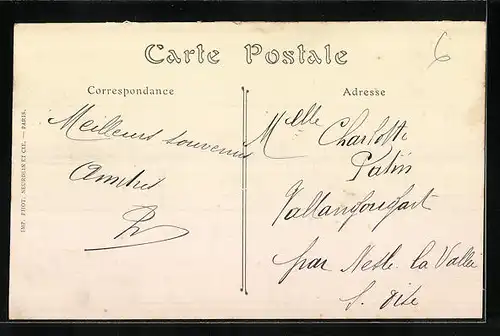 Carte Postale
6
Correspondance
Adresse
Meilleurs souvenirs
Amitiés
Mlle Charlotte
Patin
Vallangoujart
par Nesle la Vallée
S. Oise
IMP. PHOT. NEURDEIN ET CIE. — PARIS.